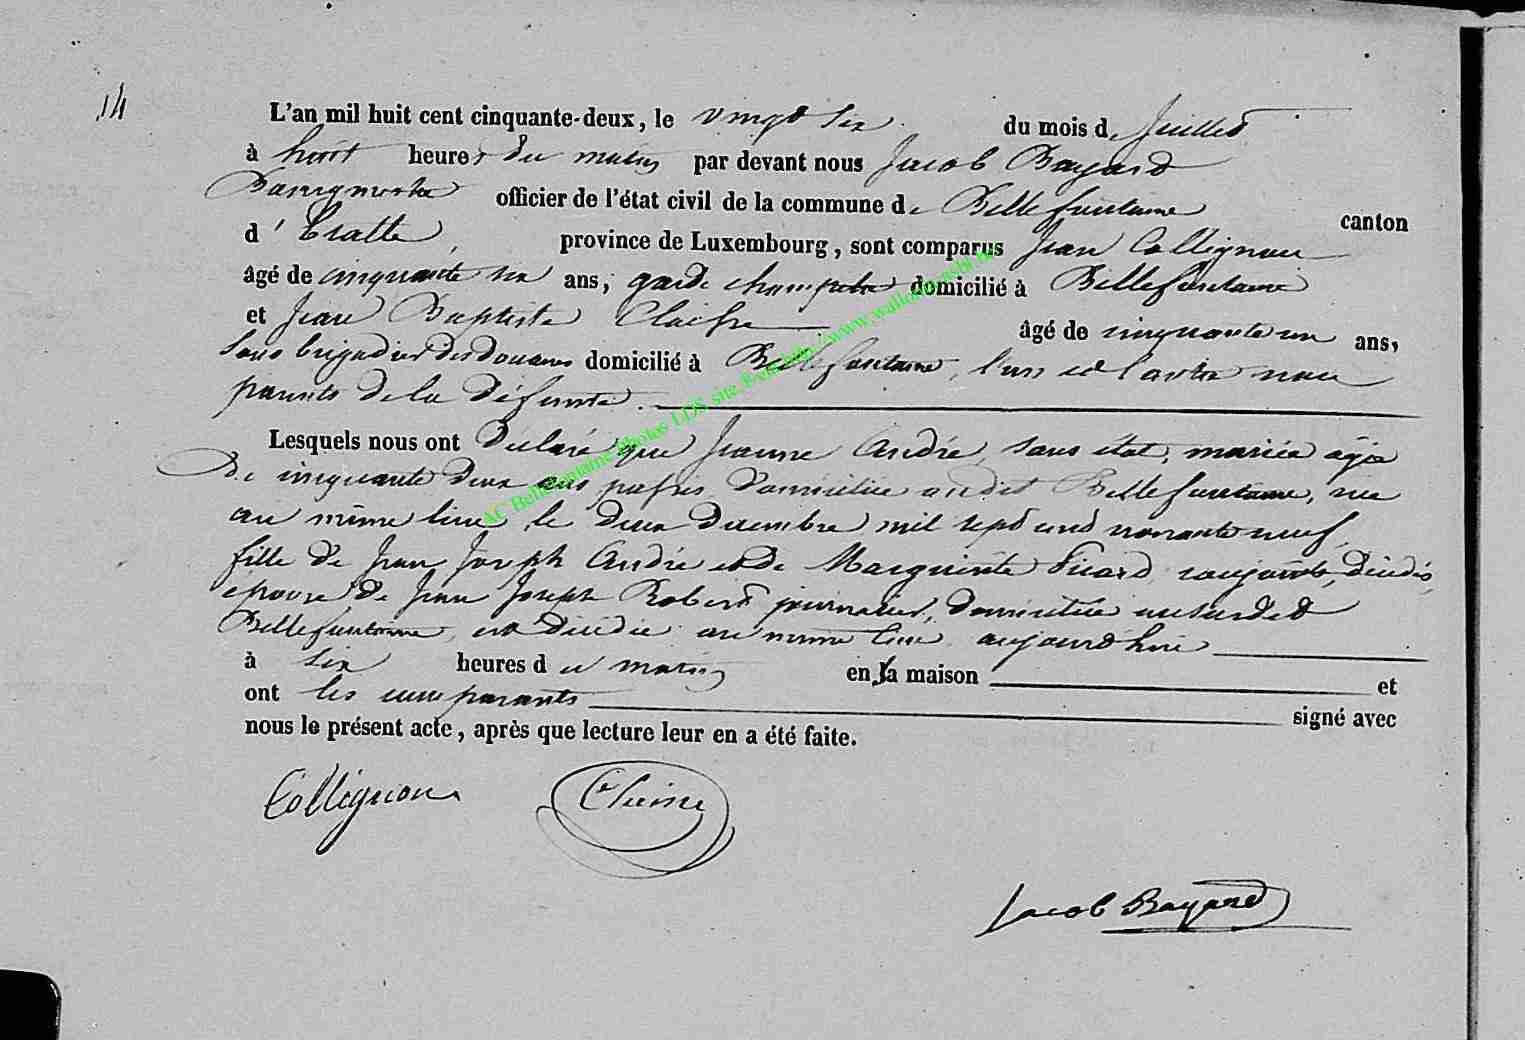 14
L'an mil huit cent cinquante-deux, le vingt six du mois de Juillet
à huit heures du matin par devant nous Jacob Bayard
Bourgmestre officier de l'état civil de la commune de Bellefontaine canton
d'Etalle, province de Luxembourg, sont comparus Jean Collignon
âgé de cinquante six ans, garde champetre domicilié à Bellefontaine
et Jean Baptiste âgé de cinquante un ans,
sous brigadier des douanes domicilié à Bellefontaine, l'un et l'autre non
parents de la défunte.
Lesquels nous ont déclaré que Jeanne André, sans état, mariée agée
de cinquante deux ans passés domiciliée audit Bellefontaine, née
au même lieu, le deux decembre mil sept cent nonante neuf,
fille de Jean Joseph André et de Marguerite Picard conjoints, décédés,
épouse de Jean Joseph Robert journalier, domiciliée
Bellefontaine, est décédée au même lieu aujourd'hui
à six heures du matin en sa maison et
ont les comparants signé avec
nous le présent acte, après que lecture leur en a été faite.
Collignon
Jacob Bayard
AC Bellefontaine Photos LDS site